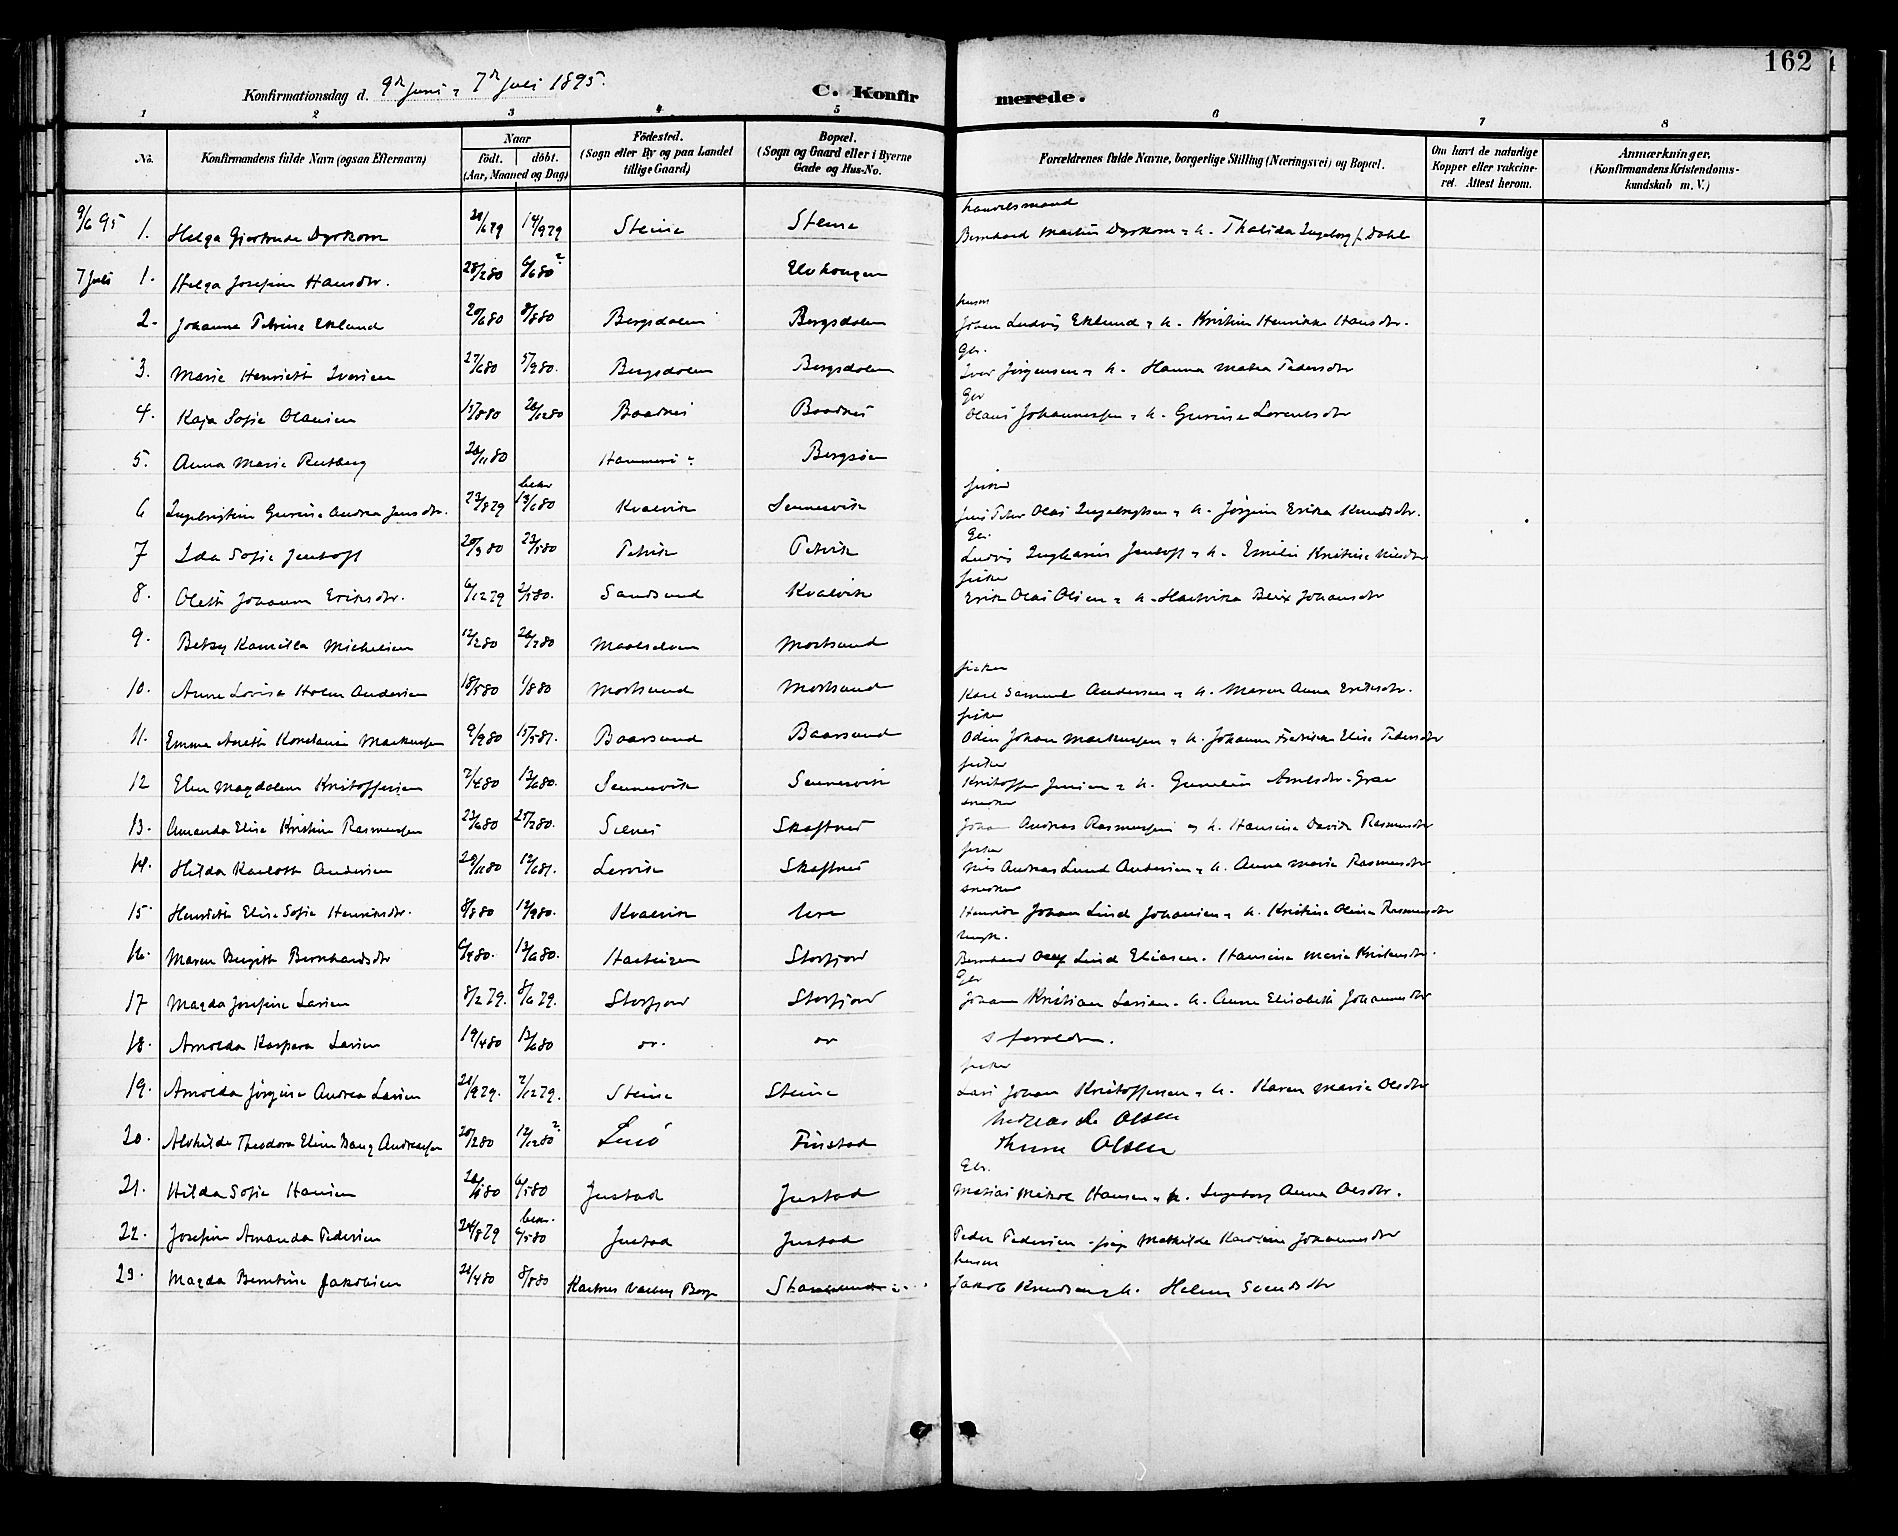 162
Konfirmationsdag d. 9de Juni & 7de Juli 1895.
C. Konfirmerede.
1 2 3 4 5 6 7 8
No. Konfirmandens fulde Navn (ogsaa Efternavn) Naar født. døbt. (Aar, Maaned og Dag) Fødested. (Sogn eller By og paa Landet tillige Gaard) Bopæl. (Sogn og Gaard eller i Byerne Gade og Hus-No. Forældrenes fulde Navne, borgerlige Stilling (Næringsvei) og Bopæl. Om havt de naturlige Kopper eller vakcineret. Attest herom. Anmærkninger. (Konfirmandens Kristendomskundskab m. V.)
handelsmand
9/6 95 1. Helga Gjertrude Dyrkorn 14/9 79 Steine Steine Bernhard Martin Dyrkorn & h. Thalida Ingeborg f. Dahl
7 Juli 1. Helga Josefine Hansdtr. 28/2 80 6/6 80 ?
husm
2. Johanna Petrine Eklund 20/6 80 8/8 80 Bergsdalen Bergsdalen Johan Ludvig Eklund & h. Kristine Henrikke Hansdtr.
Gbr.
3. Marie Henriette Iversen 27/6 80 5/9 80. Bergsdalen Bergsdalen Iver Jørgensen & h. Hanna Maria Pedersdtr
Gbr
4. Kaja Sofie Olausen 15/8 80 26/12 80 Baadnes Baadnes Olaus Johannessen & h. Gurine Lorentsdtr
5. Anna Marie 26/11 80 Hammerø ? Bergsøen
fisker
6 Ingebrigtine Gurine Andrea Jensdtr. 23/8 79 13/6 80 Kvalvik Sennesvik Jens Peter Olai Ingebrigtsen & h. Jørgine Erika Knudsdtr.
Gbr.
7 Ida Sofie Jentoft 20/3 80 23/5 80 Petvik Petvik Ludvig Jentoft & h. Emilie Kristine Nilsdtr
fisker
8. Olette Johanna Eriksdtr. 6/12 79 2/5 80. Sandsund Kvalvik Erik Olai Olsen & h. Hartvika Blix Johansdtr
9. Betzy Kamilla Michelsen 12/2 80 Maalselven Mortsund
fisker
10. Anne Lovise Holm Andersen 18/5 80 1/8 80 Mortsund Mortsund Karl Samuel Andersen & h. Maren Anna Eriksdtr.
fisker
11. Emma Anette Konstanse Markussen 9/9 80 15/5 81. Baarsund Baarsund Odin Johan Markussen & h. Johanna Fredrikke Elise Pedersdtr
fisker
12 Elen Magdalena Kristoffersen 2/4 80 13/6 80. Sennesvik Sennesvik Kristoffer Jensen & h. Gunelie Arntsdtr. Grav
snedker
13. Amanda Elise Kristine Rasmussen 23/6 80 25/7 80. Silnes Skaftnes Johan Andreas Rasmussen og h. Hansine Davida Rasmusdtr
fisker
14. Hilda Karlotte Andersen 20/11 80 12/6 81. Lervik Skaftnes Nils Andreas Lund Andersen & h. Anna Marie Rasmusdtr
snedker
15 Henriette Elise Sofie Henriksdtr. 8/8 80 12/9 80. Kvalvik Ure Henrik Johan Lind Johansen & h. Kristine Olina Rasmusdtr
16. Maren Birgitte Bernhardsdtr 13/6 80. Storfjord Bernhard Lind Eliasen. Hansine Marie Kristensdtr.
Gbr
17 Magda Josefine Larsen 8/2 79. 8/6 79. Storfjord Storfjord Johan Kristian Larsen & h. Anne Elisabeth Johannesdtr
18. Arnolda Kaspara Larsen 19/4 80 13/6 80 s foreldre.
fisker
19. Arnolda Jørgine Andrea Larsen 21/9 79. 7/12 79. Steine Steine Lars Johan Kristoffersen & h. Karen Marie Olsdtr
20. Alvhilde Theodora Eline Bang Andreassen 20/2 80 12/12 80 ? Finstad Andreas Olsen
Olsen
Gbr.
21. Hilda Sofie Hansen 6/5 80 Justad Justad Matias Mikal Hansen & h. Ingeborg Anna Olsdtr.
22. Josefine Amanda Pedersen 24/8 79 6/5 80 Justad Justad Peder Pedersen Mathilde Karoline Johannesdtr
husm
23. Magda Berntine Jakobsen 21/4 80 8/8 80 Jakob Knudsen & h. Helene Svendsdtr